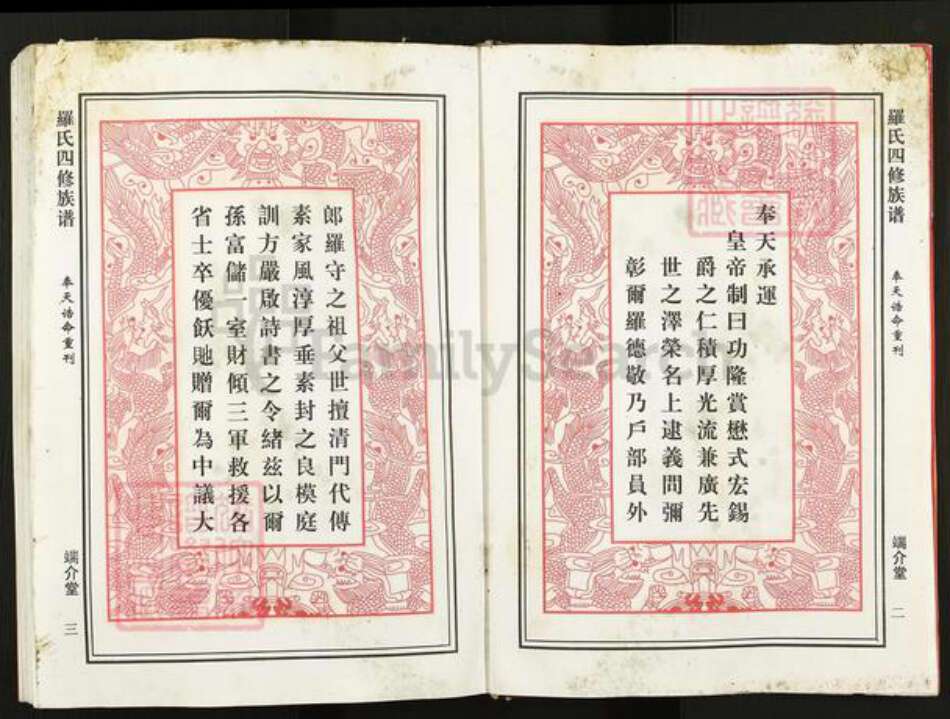 羅氏四修族谱
奉天誥命重刊
端介堂
二
奉天承運
皇帝制曰功隆賞懋式宏錫
爵之仁積厚光流兼廣先
世之澤榮名上逮義問彌
彰爾羅德敬乃戶部員外
郎羅守之祖父世擅清門代傳
素家風淳厚垂素封之良模庭
訓方嚴啟詩書之令緒茲以爾
孫富儲一室財傾三軍救援各
省士卒優飫貤贈爾為中議大
羅氏四修族谱
奉天誥命重刊
端介堂
三
FamilySearch